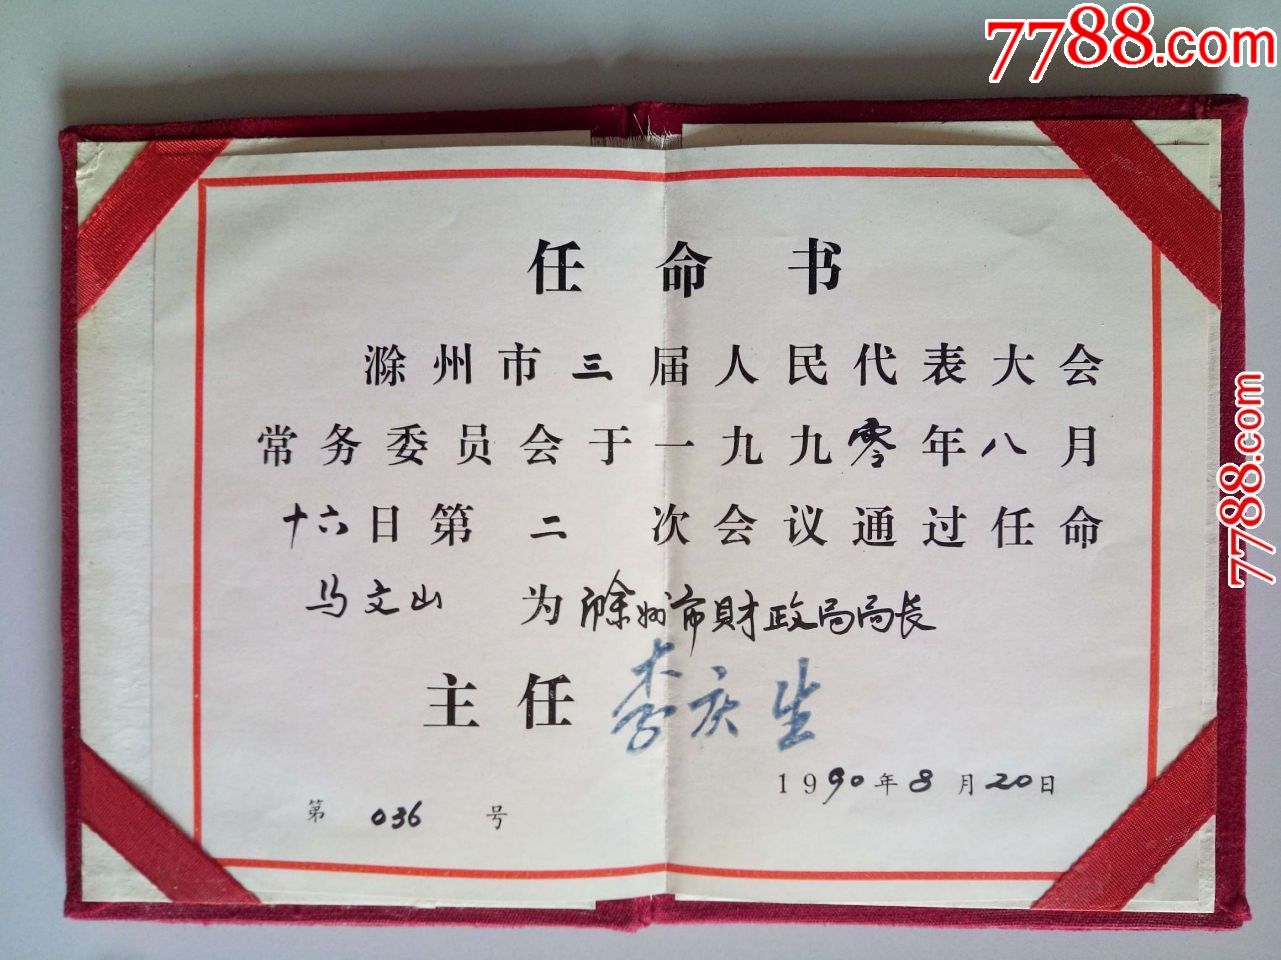 7788.com
任命书
滁州市三届人民代表大会
常务委员会于一九九零年八月
十六日第二次会议通过任命
马文山 为滁州市财政局局长
主任 李庆生
1990年8月20日
第 036 号
7788.com